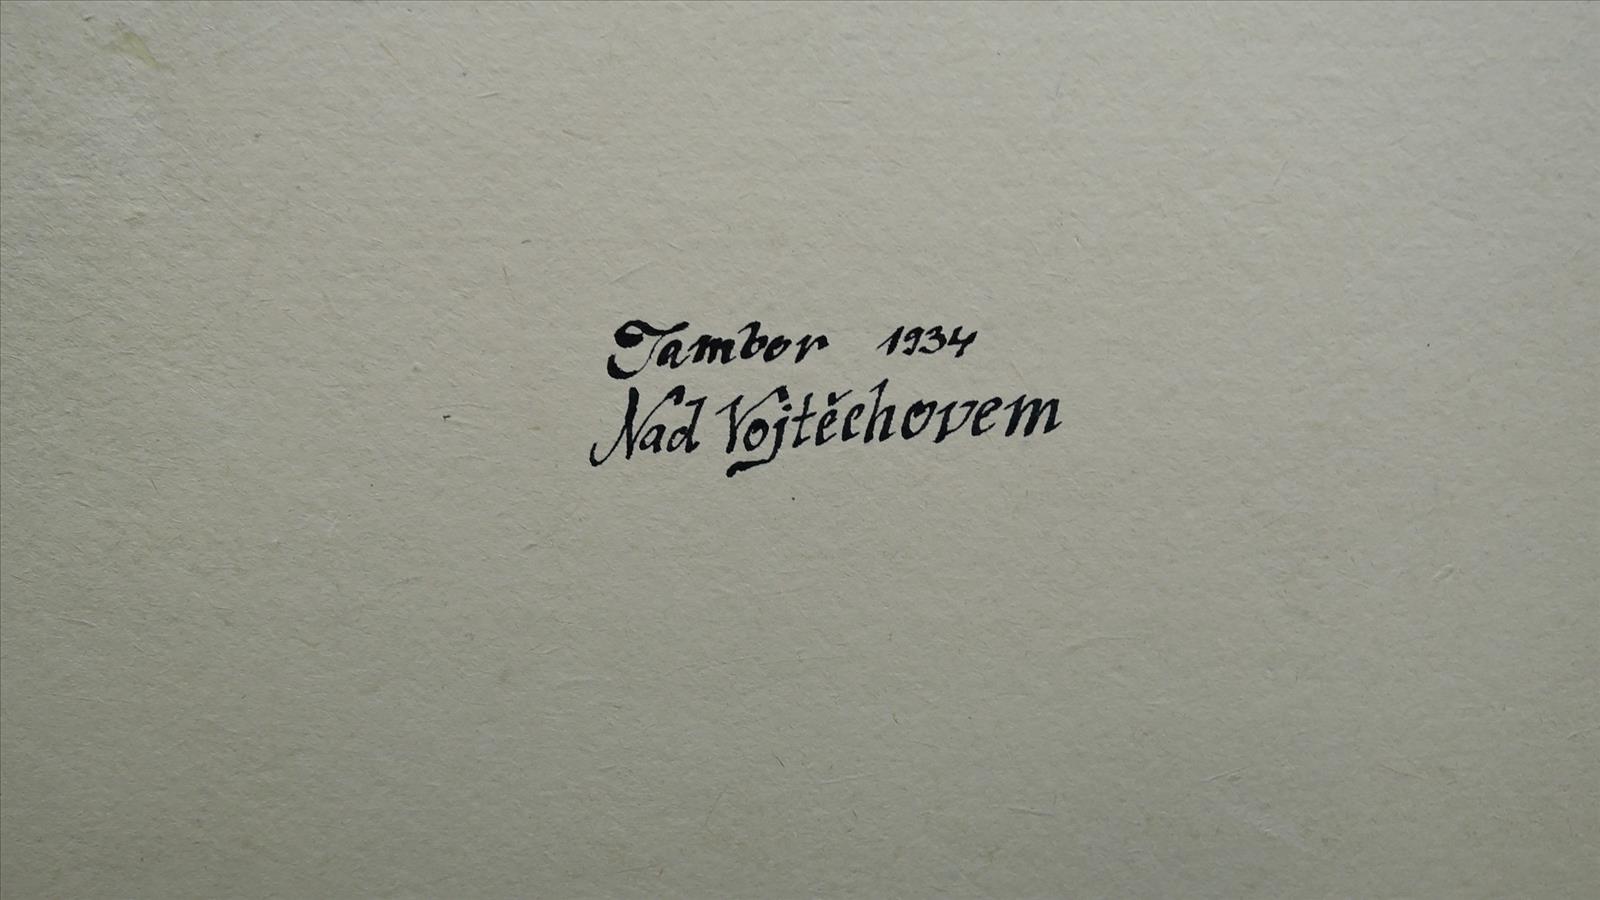 Tambor 1934
Nad Vojtěchovem